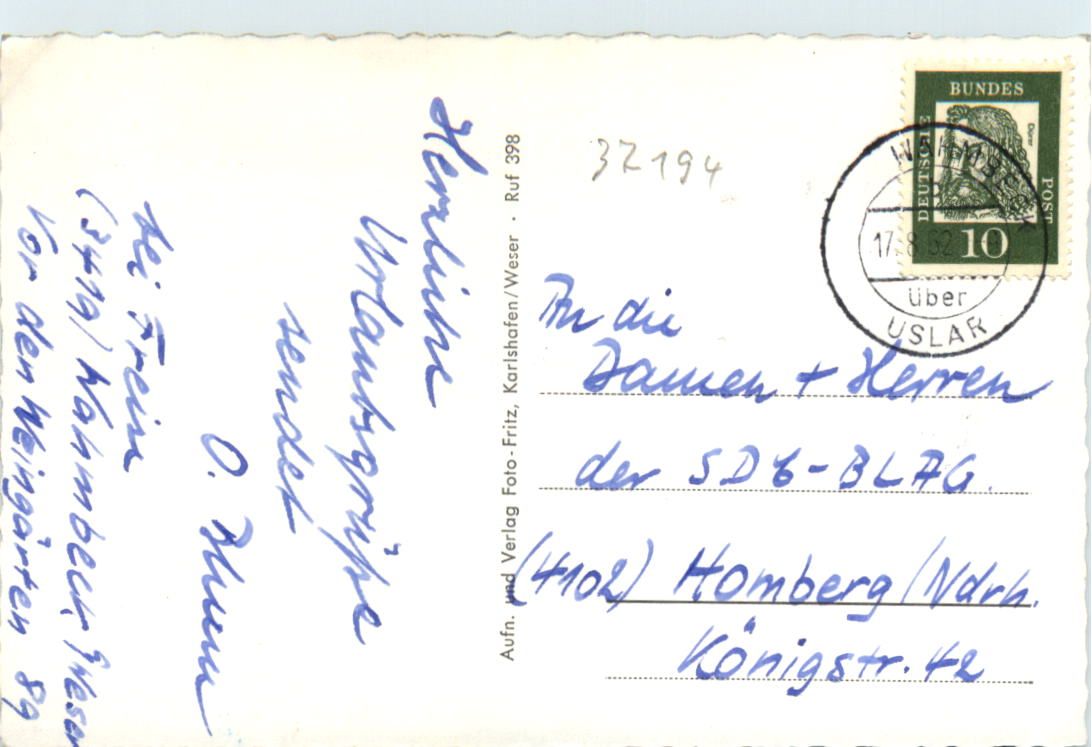 Herzliche
Urlaubsgrüße
sendet
O.
bei Frein
(3419) Wahmbeck/Weser
Vor den Weingärten 89
Aufn. und Verlag Foto-Fritz, Karlshafen/Weser · Ruf 398
37194
DEUTSCHE
BUNDES
POST
Dürer
10
WAHMBECK
b
17.8.62
über
USLAR
An die
Damen + Herren
der SDB-BLAG.
(4102) Homberg/Ndrh.
Königstr. 42